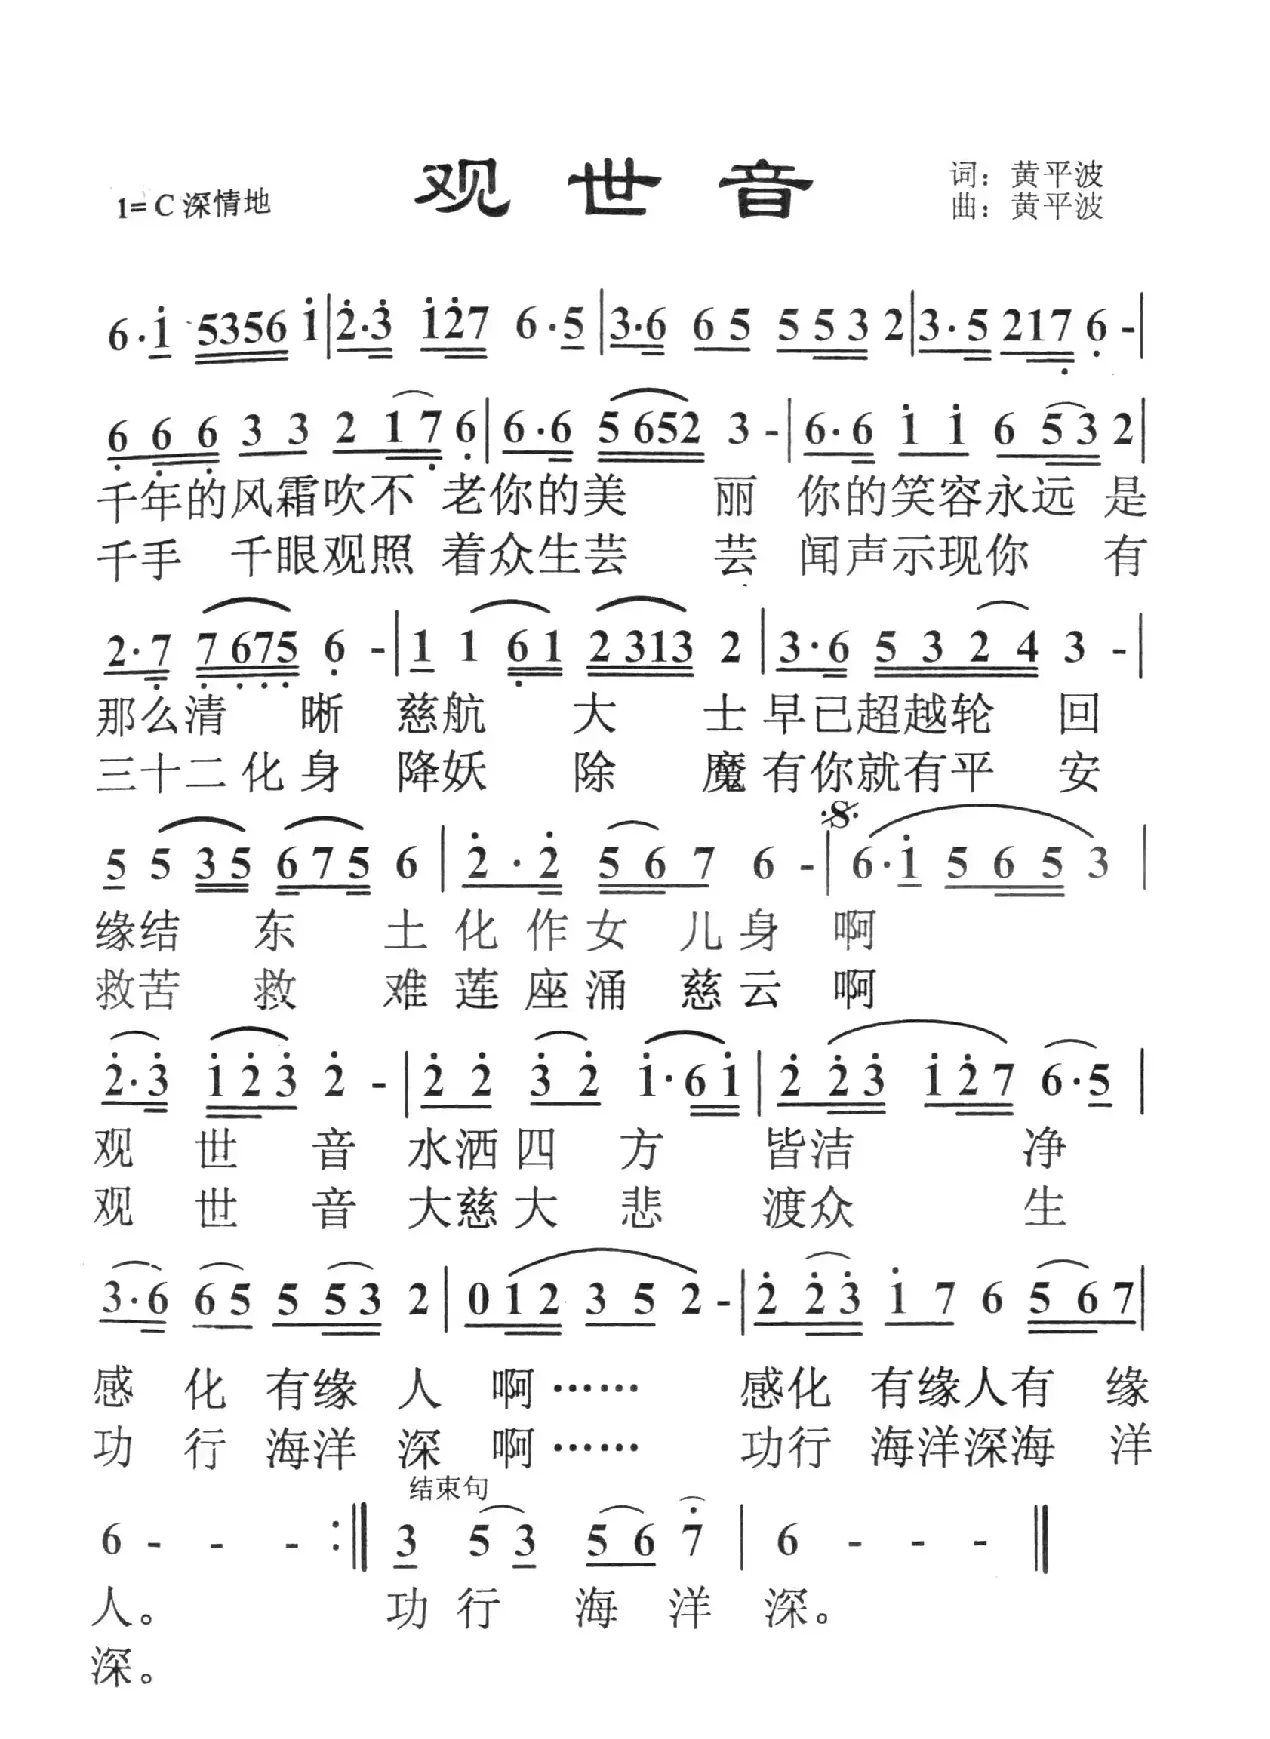 观世音
1=C 深情地
词：黄平波
曲：黄平波
6·i 5356 i|2·3 i27 6·5|3·6 65 553 2|3·5 217 6-|
666 33 2 17 6|6·6 5652 3-|6·6 i i 6 53 2|
千年的风霜吹不 老你的美 丽 你的笑容永远 是
千手 千眼观照 着众生芸 芸 闻声示现你 有
2·7 7675 6-|1 1 61 2313 2|3·6 5324 3-|
那么清 晰 慈航 大 士早已超越轮 回
三十二化身 降妖 除 魔有你就有平 安
5 5 35 675 6|2·2 567 6-|6·i 5653|
缘结 东 土 化 作 女 儿 身 啊
救苦 救 难 莲 座 涌 慈 云 啊
2·3 i23 2-|2 2 3 2 i·6i|2 23 i27 6·5|
观 世 音 水洒 四 方 皆洁 净
观 世 音 大慈 大 悲 渡众 生
3·6 65 553 2|012 35 2-|2 23 i7 6 567|
感 化 有缘 人 啊…… 感化 有缘人有 缘
功 行 海洋 深 啊…… 功行 海洋深海 洋
结束句
6 - - -:‖3 5 3 5 6 7|6 - - -‖
人。 功 行 海 洋 深。
深。